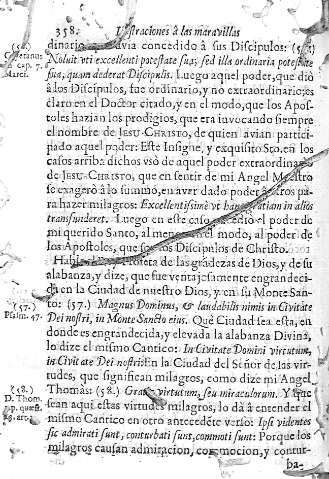 358. Ilustraciones à las maravillas
dinario avia concedido à sus Discipulos: (56.)
Noluit uti excellenti potestate sua, sed illa ordinaria potestate
sua, quam dederat Discipulis. Luego aquel poder, que diò
à los Discipulos, fue ordinario, y no extraordinario; es
claro en el Doctor citado, y en el modo, que los Apos-
toles hazian los prodigios, que era invocando siempre
el nombre de JESU-CHRISTO, de quien avian partici-
pado aquel poder: Este Insigne, y exquisito Sto. en los
casos arriba dichos usò de aquel poder extraordinario
de JESU-CHRISTO, que en sentir de mi Angel Maestro
se exagerò à lo summo, en aver dado poder à otros pa-
ra hazer milagros: Excellentissimè ut hanc gratiam in alios
transfunderet. Luego en este caso excediò el poder de
mi querido Santo, al menos en el modo, al poder de
los Apostoles, que son los Discipulos de Christo.
Habla el Profeta de las grãdezas de Dios, y de su
alabanza, y dize, que fue ventajesamente engrandeci-
da en la Ciudad de nuestro Dios, y en su Monte San-
to: (57.) Magnus Dominus, & laudabilis nimis in Civitate
Dei nostri, in Monte Sancto eius. Què Ciudad sea esta, en
donde es engrandecida, y elevada la alabanza Divina,
lo dize el mismo Cantico: In Civitate Domini virtutum,
in Civitate Dei nostri: En la Ciudad del Señor de las vir-
tudes, que significan milagros, como dize mi Angel
Thomàs: (58.) virtutum, seu miraculorum. Y que
sean aqui estas virtudes milagros, lo dà à entender el
mismo Cantico en otro antecedẽte verso: Ipsi videntes
sic admirati sunt, conturbati sunt, commoti sunt: Porque los
milagros causan admiracion, commocion, y contur-
ba-
(56.)
Caietanus
cap. 7.
Marci.
(57.)
Psalm. 47.
(58.)
D. Thom.